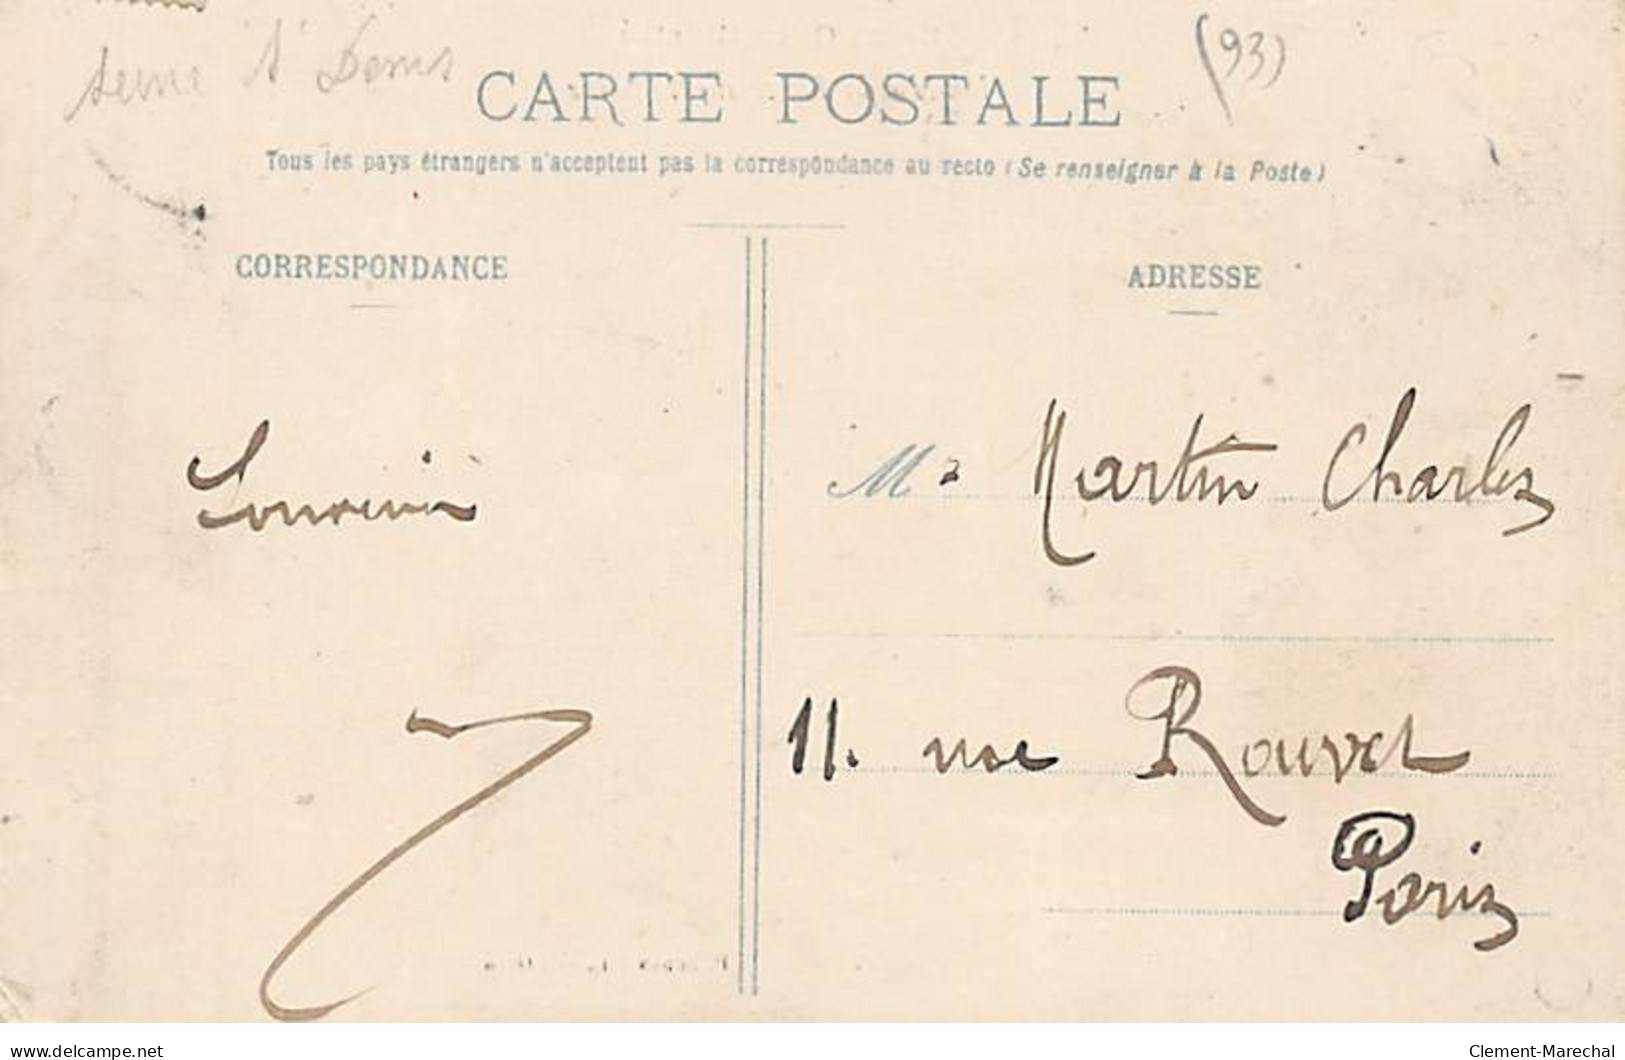 Seine St Denis
(93)
CARTE POSTALE
Tous les pays étrangers n'acceptent pas la correspondance au recto (Se renseigner à la Poste)
CORRESPONDANCE
ADRESSE
Mr Martin Charles
11. rue Rouvet
Paris
Clement-Marechal
www.delcampe.net